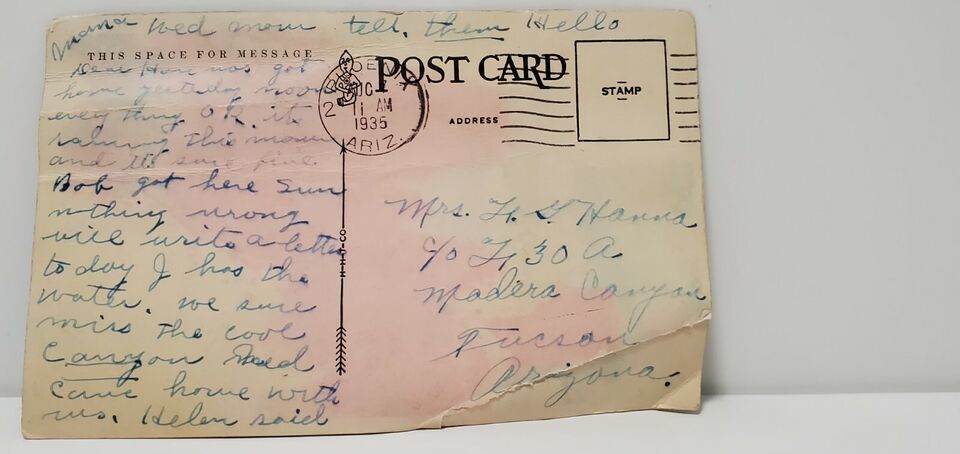 Mama Wed morn tell, them Hello
THIS SPACE FOR MESSAGE
Dear Hon was got
home yesteday noon
every thing O.K. its
raining this morn
and its sure fine
Bob got here Sun
nothing wrong
will write a letter
today I has the
water. we sure
miss the cool
Canyon
came home with
us. Helen said
POST CARD
ADDRESS
STAMP
1 AM
1935
ARIZ.
Mrs. H. G Hanna
c/o H 30 A
Madera Canyon
Tucson
Arizona.